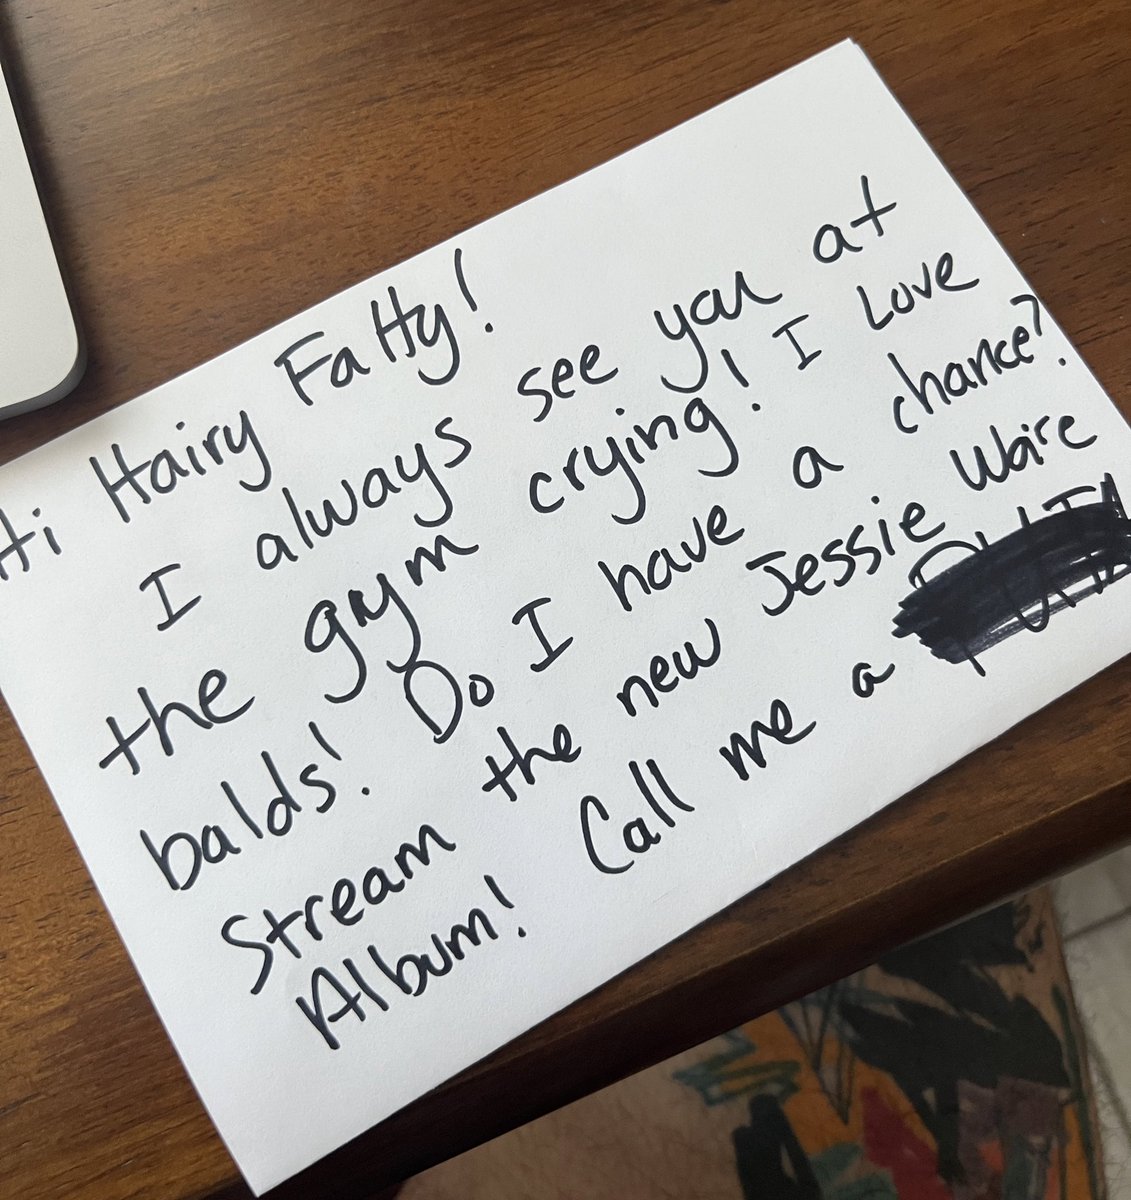 Hi Hairy Fatty!
I always see you at
the gym crying! I Love
balds! Do I have a chance?
Stream the new Jessie Waire
Album! Call me a